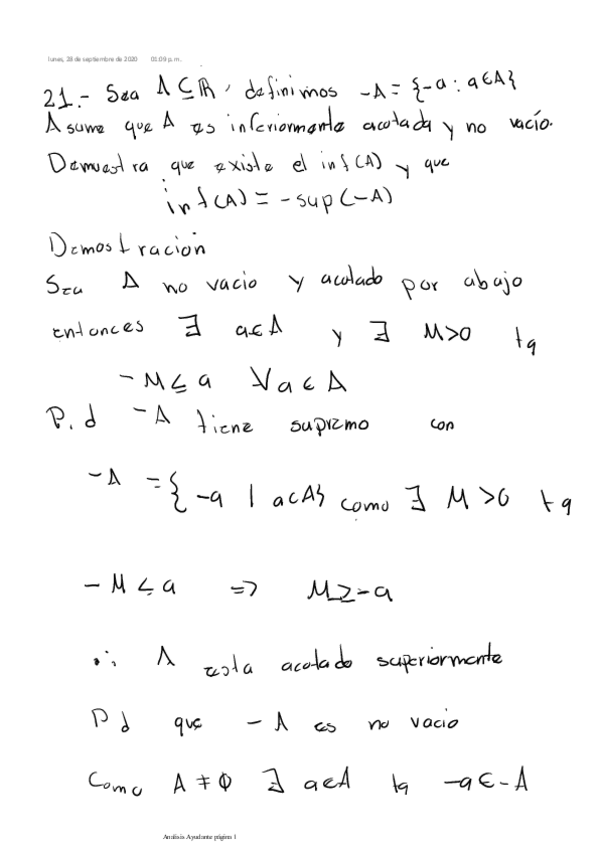 lunes, 28 de septiembre de 2020 01:09 p. m.
21.- Sea A ⊆ ℝ, definimos -A = {-a : a∈A}
Asume que A es inferiormente acotada y no vacío.
Demuestra que existe el inf(A) y que
inf(A) = - sup(-A)
Demostración
Sea A no vacio y acotado por abajo
entonces ∃ a∈A y ∃ M>0 tq
-M ≤ a ∀a∈A
P.d -A tiene supremo con
-A = {-a | a∈A} como ∃ M>0 tq
-M ≤ a => M ≥ -a
∴ A esta acotado superiormente
Pd que -A es no vacio
Como A ≠ ∅ ∃ a∈A tq -a∈-A
Análisis Ayudante página 1